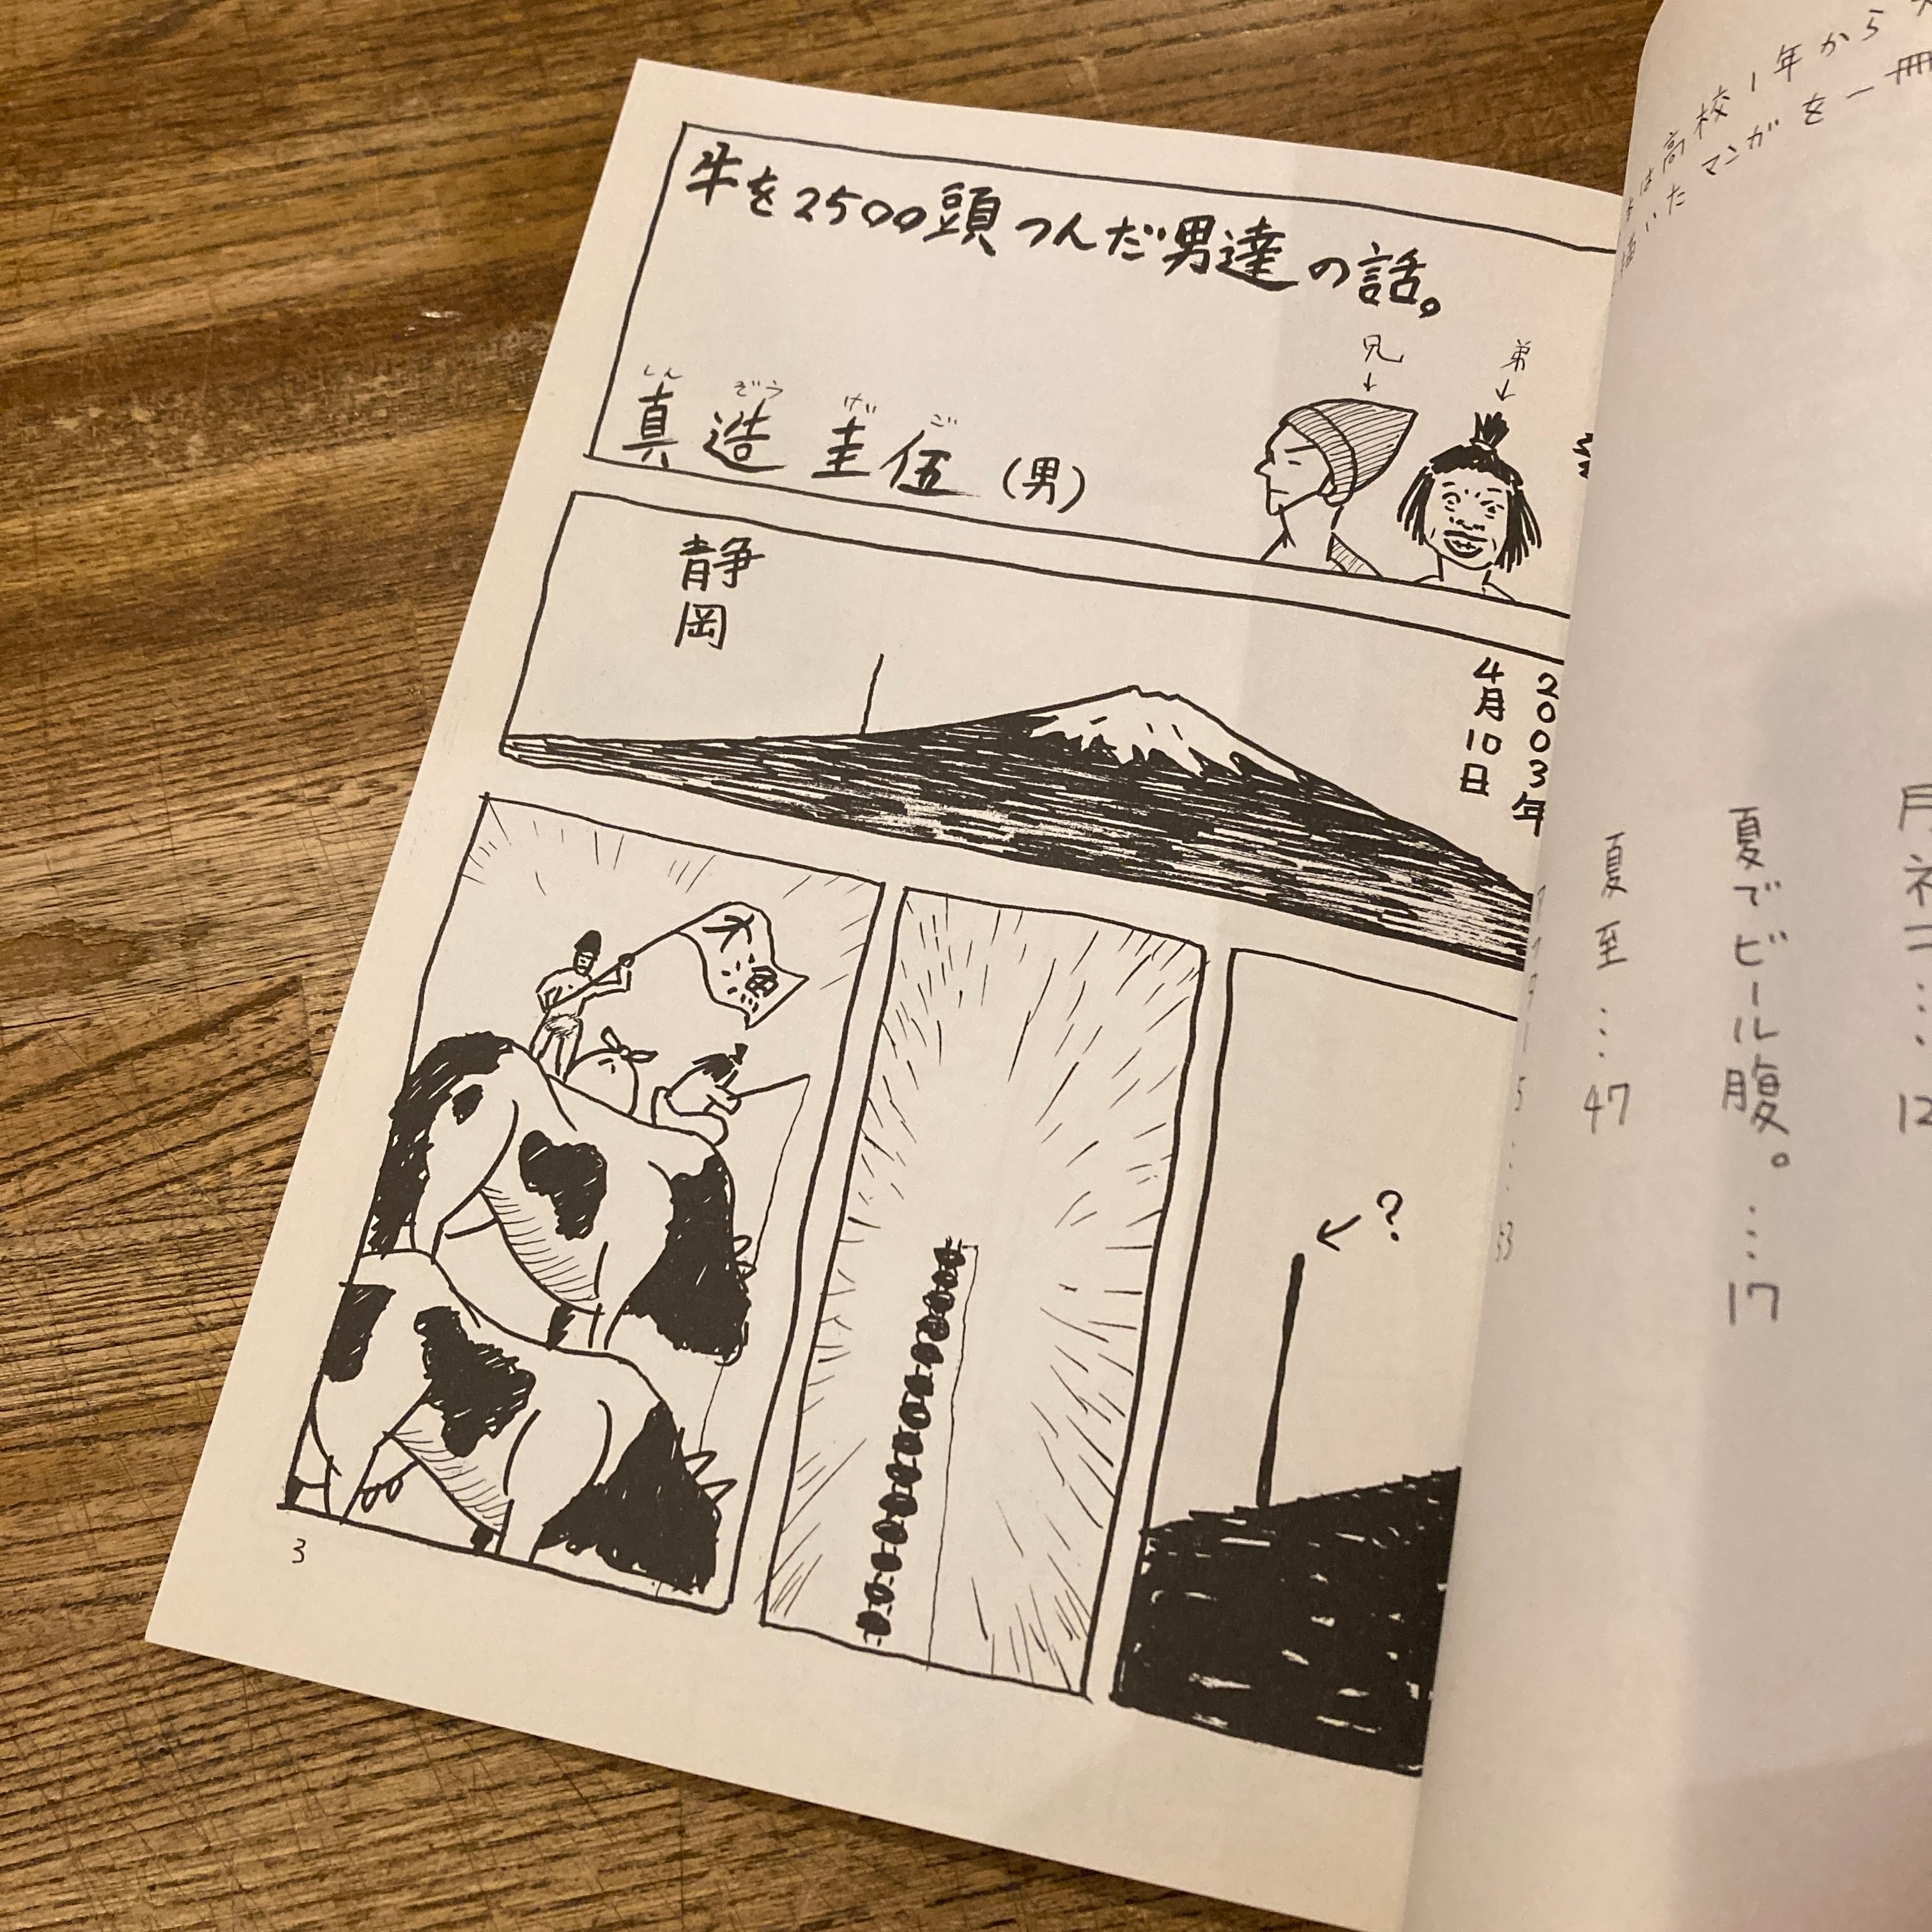 牛を2500頭つんだ男達の話。
兄
弟
しん ぞう けい ご
真造 圭伍 (男)
2003年
4月10日
静岡
?
大漁
3
は高校1年から
いたマンガを一冊
12
夏でビール腹。…17
夏至…47